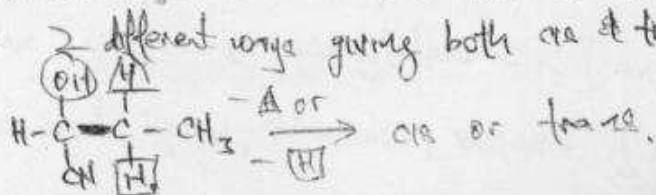 2 different ways giving both cis & tr
OH H
H-C-C-CH₃ -△ or → cis or trans.
CN H -H